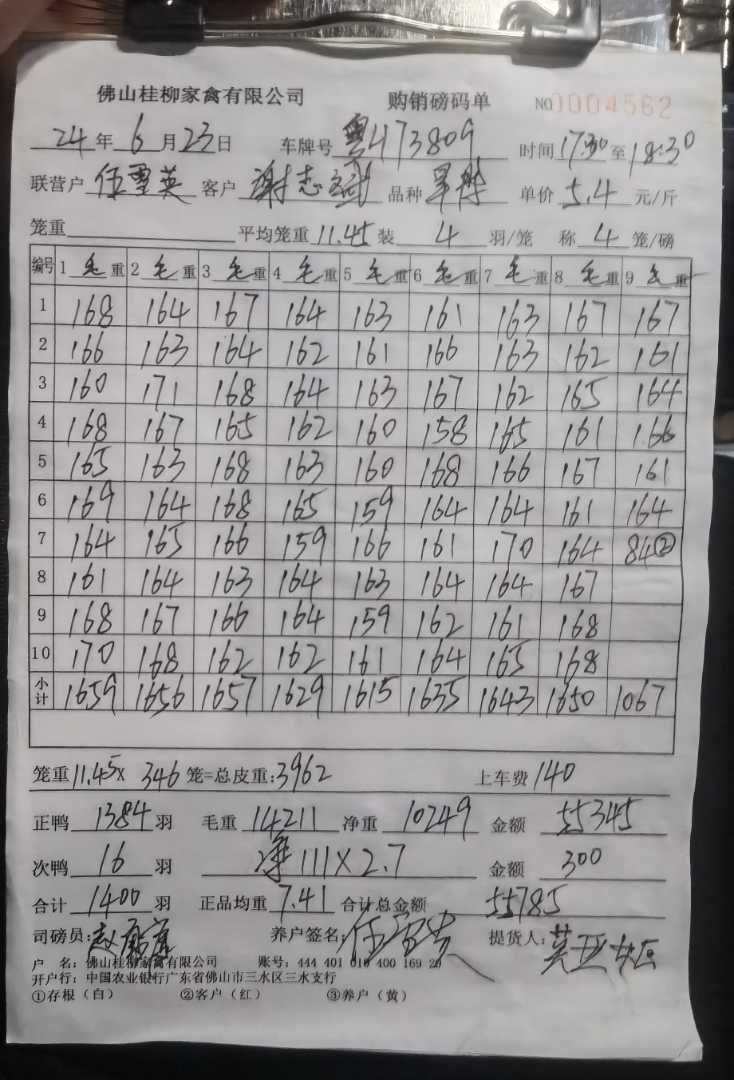 佛山桂柳家禽有限公司 购销磅码单 NO 0004562
24年6月23日 车牌号 粤473809 时间17:30至18:30
联营户 伍雪英 客户 谢志斌 品种 单价 5.4 元/斤
笼重 平均笼重 11.45 装 4 羽/笼 称 4 笼/磅
编号 1 毛重 2 毛重 3 毛重 4 毛重 5 毛重 6 毛重 7 毛重 8 毛重 9 毛重
1 168 164 167 164 163 161 163 167 167
2 166 163 164 162 161 166 163 162 161
3 160 171 168 164 163 167 162 165 164
4 168 167 165 162 160 158 165 161 166
5 165 163 168 163 160 168 166 167 161
6 169 164 168 165 159 164 164 161 164
7 164 165 166 159 166 161 170 164 84②
8 161 164 163 164 163 164 164 167
9 168 167 166 164 159 162 161 168
10 170 168 162 162 161 164 165 168
小计 1659 1656 1657 1629 1615 1635 1643 1650 1067
笼重 11.45× 346 笼=总皮重:3962 上车费 140
正鸭 1384 羽 毛重 14211 净重 10249 金额 55345
次鸭 16 羽 净111×2.7 金额 300
合计 1400 羽 正品均重 7.41 合计总金额 55785
司磅员: 养户签名: 提货人:
户 名: 佛山桂柳家禽有限公司 账号: 444 401 010 400 169 29
开户行: 中国农业银行广东省佛山市三水区三水支行
①存根（白） ②客户（红） ③养户（黄）